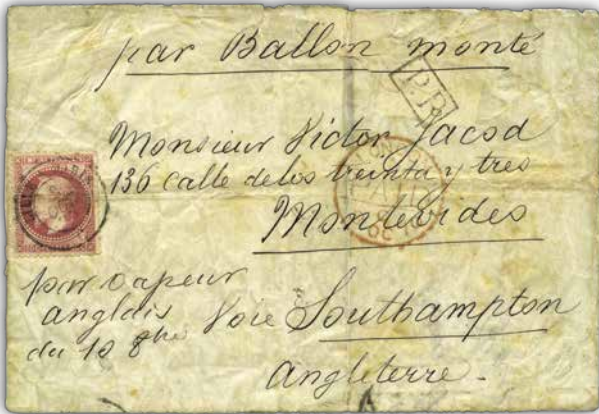 par Ballon monté
P.P.
Monsieur Victor Jacod
136 calle delos treinta y tres
Montevideo
par vapeur
anglais Voie Southampton
du 10 8bre
Angleterre.